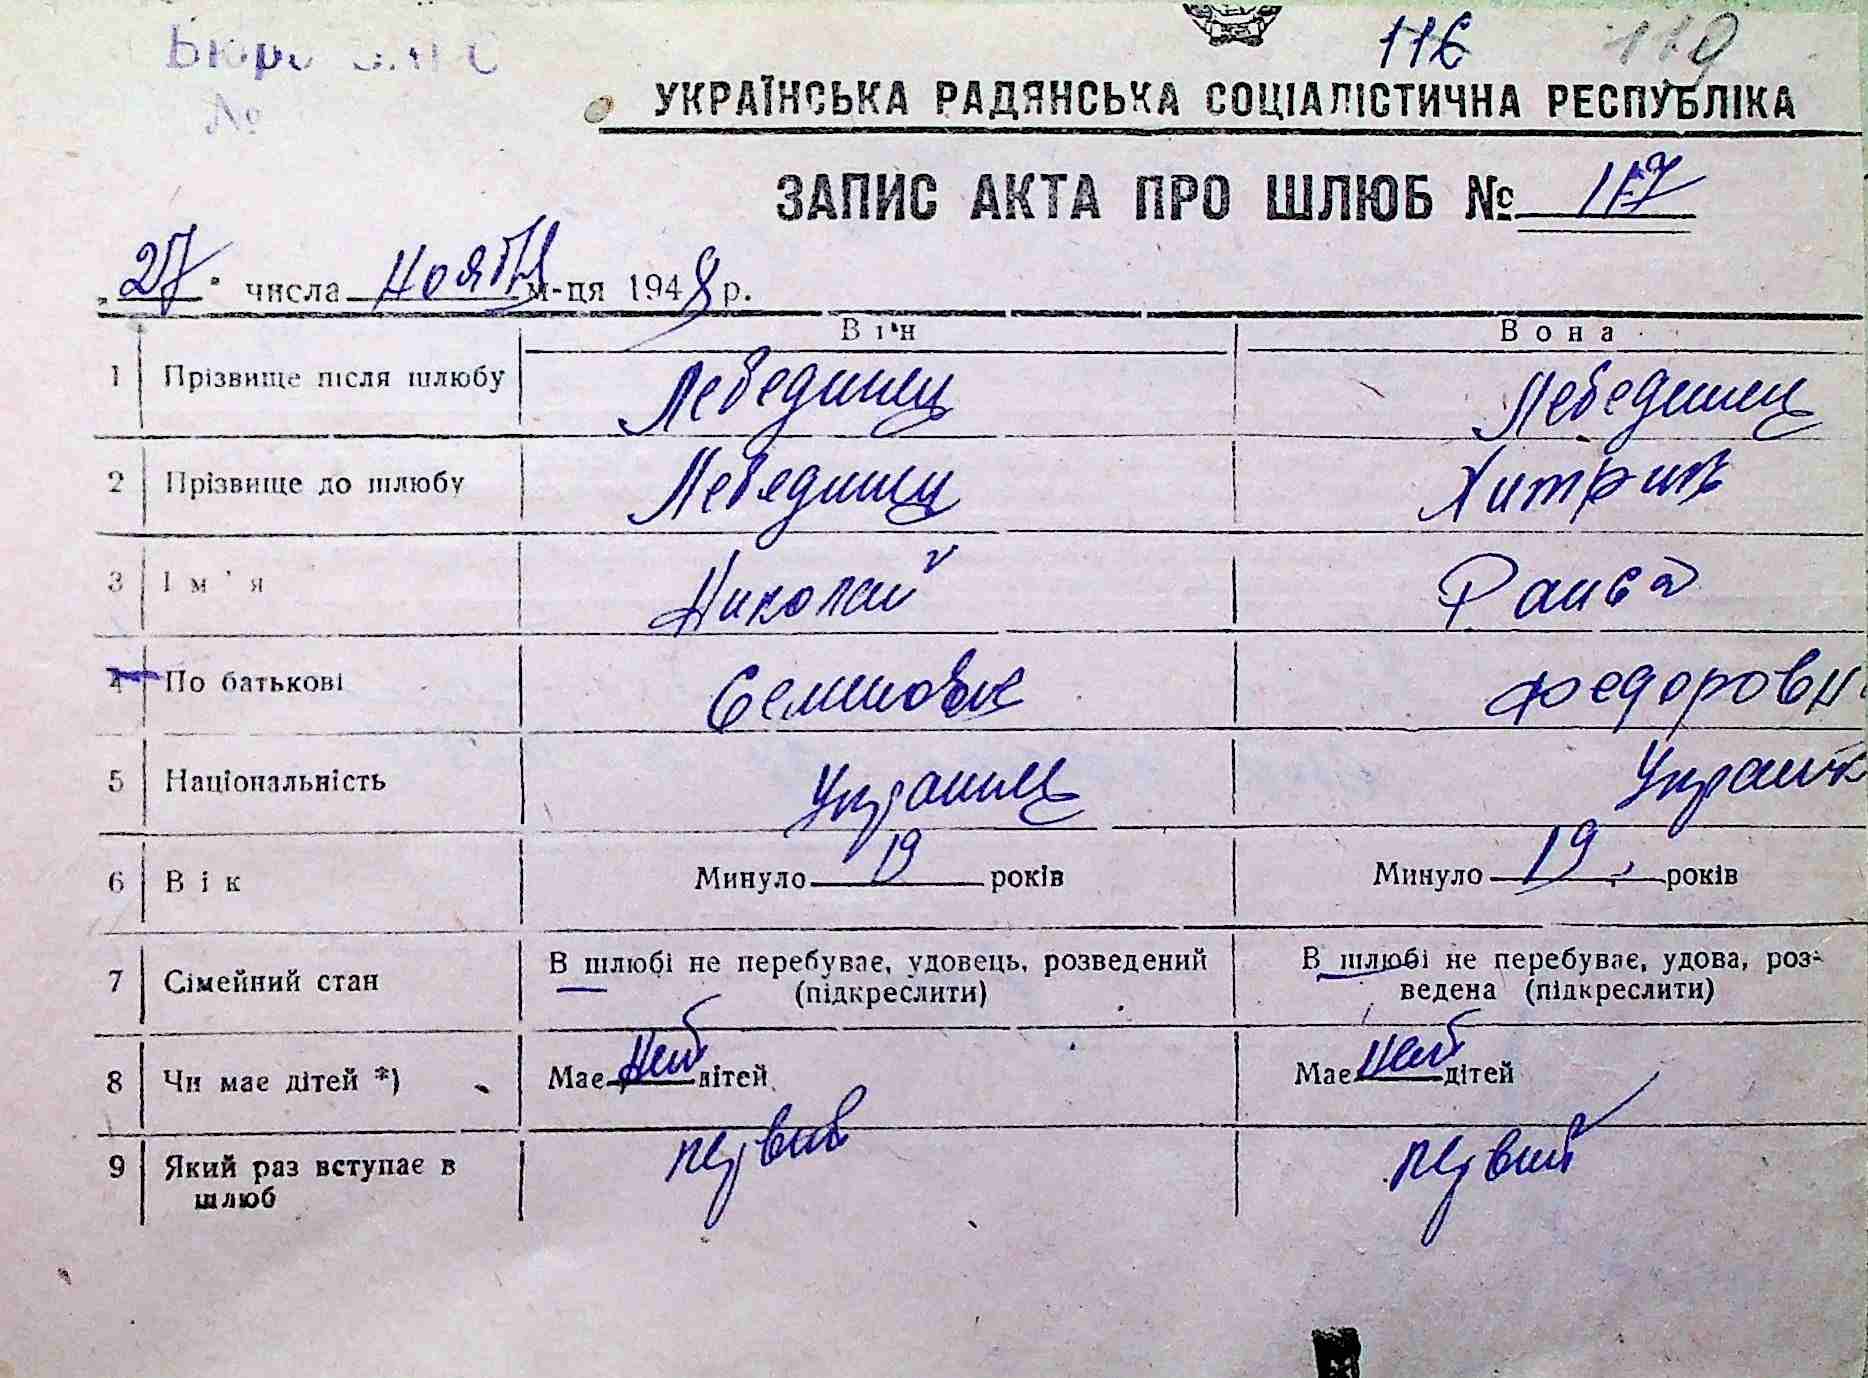 Бюро ЗАГС
№
116 119
УКРАЇНСЬКА РАДЯНСЬКА СОЦІАЛІСТИЧНА РЕСПУБЛІКА
ЗАПИС АКТА ПРО ШЛЮБ № 117
„27" числа ноября м-ця 1948 р.
Він Вона
1 Прізвище після шлюбу Лебединец Лебединец
2 Прізвище до шлюбу Лебединец
3 Ім'я Николай Раиса
4 По батькові Семенович Федоровн
5 Національність Украинец Украинк
6 Вік Минуло 19 років Минуло 19 років
7 Сімейний стан В шлюбі не перебуває, удовець, розведений (підкреслити) В шлюбі не перебуває, удова, роз-
ведена (підкреслити)
8 Чи має дітей *) Має нет дітей Має нет дітей
9 Який раз вступає в первый первый
шлюб